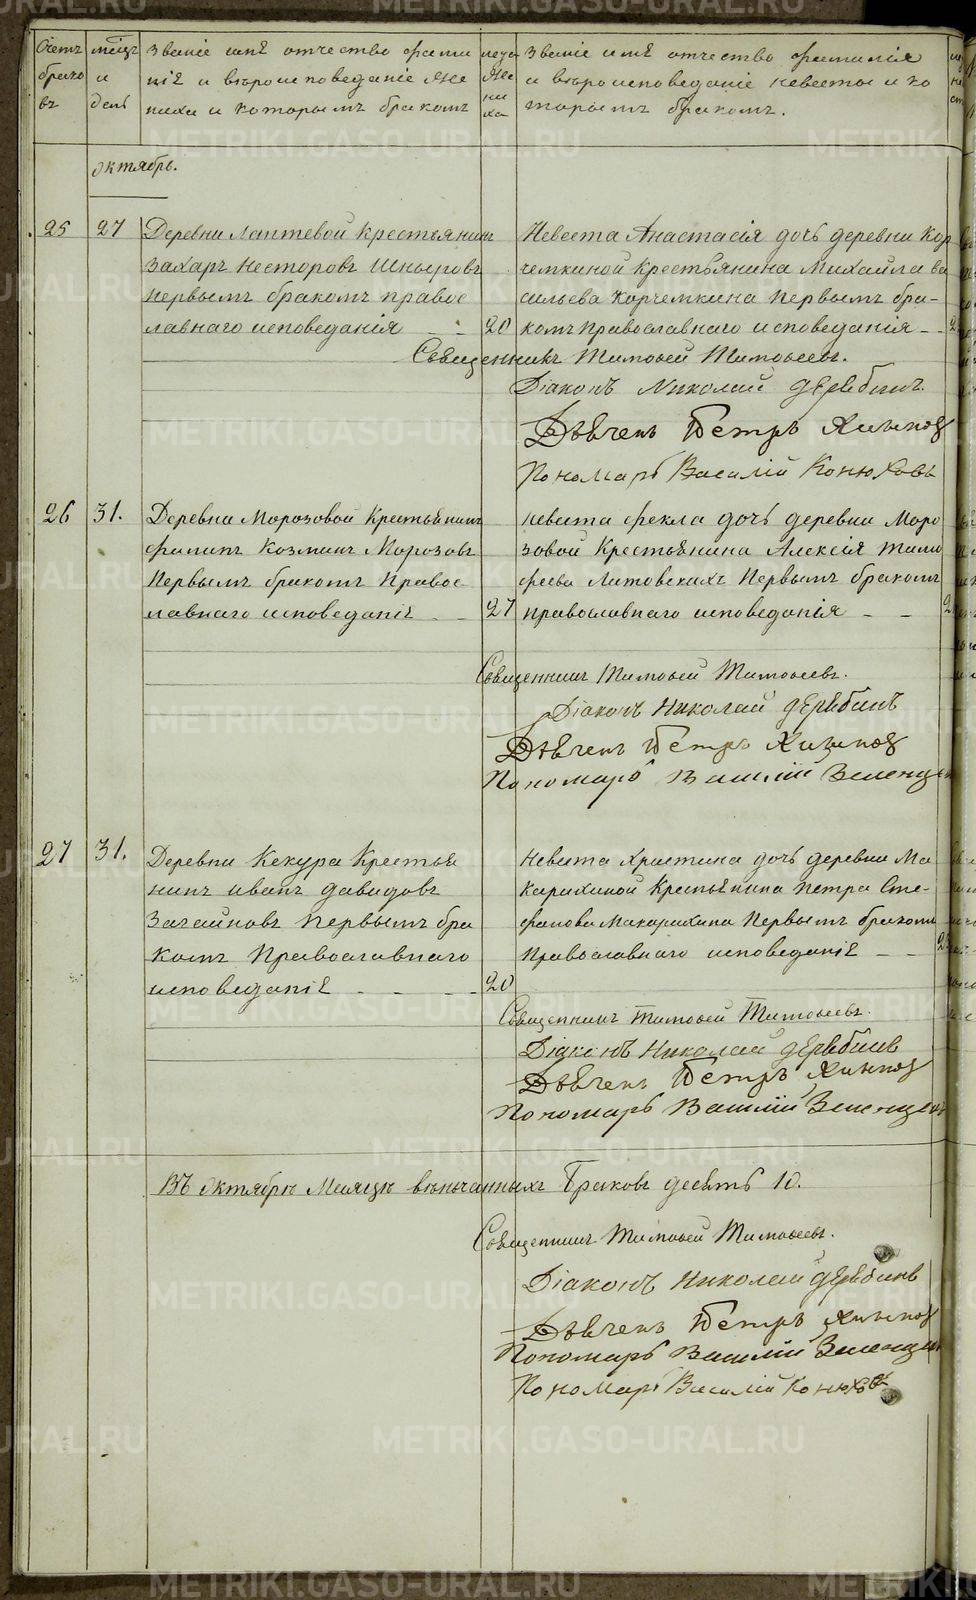 Счетъ брако въ
месцъ и день
Званіе имѣ отчество фами
ліѣ и вѣроисповеданіе Же
ниха и которымъ бракомъ
лета Же ни ха
Званіе имѣ отчество фамиліѣ
и вѣроисповеданіе невесты и ко
торымъ бракомъ.
октябрь.
25 27 Деревни Лаптевой Крестьянинъ
Захаръ Несторовъ Шныровъ
первымъ бракомъ правос
лавнаго исповеданія - - 20
Невеста Анастасія дочь деревни Кор
чемкиной Крестьянина Михайла ва
сильева Корчемкина первымъ бра-
комъ Православнаго исповеданія - - 2
Священникъ Тимоѳей Тимоѳеевъ.
Діаконъ Николай Дерябинъ
Дьячекъ Петръ
Пономарь Василій Конюховъ
26 31. Деревни Морозовой Крестьянинъ
филипъ Козминъ Морозовъ
Первымъ бракомъ Правос
лавнаго исповеданіѣ - - 27
невеста фекла дочь деревни Моро
зовой Крестьянина Алексія Тимо
феева Литовскихъ Первымъ бракомъ
православнаго исповеданія - - 2
Священникъ Тимоѳей Тимоѳеевъ.
Діаконъ Николай Дерябинъ
Дьячекъ Петръ
Пономарь Василій Зеленцо
27 31. Деревни Кекура Крестья
нинъ иванъ давидовъ
первымъ бра
комъ Православнаго
исповеданіѣ - - - - 20
Невеста Христина дочь деревни Ма
карихиной Крестьянина петра Сте-
фанова Макарихина Первымъ бракомъ
Православнаго исповеданіѣ - - 2
Священникъ Тимоѳей Тимоѳеевъ.
Діаконъ Николай Дерябинъ
Дьячекъ Петръ
Пономарь Василій Зеленцо
ВЪ октябрѣ Месяцѣ венчанныхъ Браковъ десять 10.
Священникъ Тимоѳей Тимоѳеевъ.
Діаконъ Николай Дерябинъ
Дьячекъ Петръ
Пономарь Василій Зеленцо
Пономарь Василій Конюховъ
METRIKI.GASO-URAL.RU